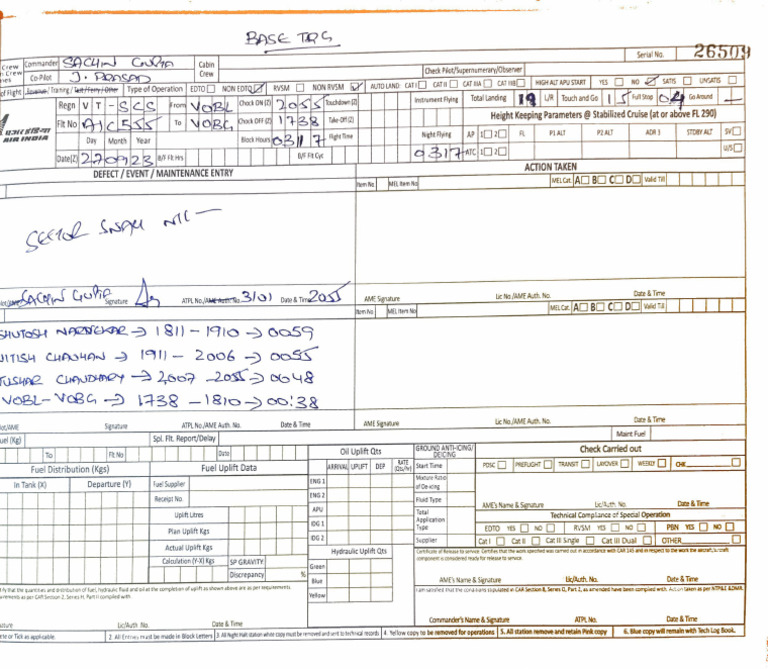 BASE TRG
Serial No. 26509
Crew Commander SACHIN GUPTA Cabin Crew
Co-Pilot J. PRASAD Check Pilot/Supernumerary/Observer
of Flight Revenue/Training/Test/Ferry/Other Type of Operation EDTO NON EDTO RVSM NON RVSM AUTO LAND CAT I CAT II CAT IIIA CAT IIIB HIGH ALT APU START YES NO SATIS UNSATIS
Regn VT-SCS From VOBL Check ON (Z) 2055 Touchdown (Z) Instrument Flying Total Landing 19 L/R Touch and Go 15 Full Stop 04 Go Around —
Flt No AIC555 To VOBG Check OFF (Z) 1738 Take-Off (Z) Height Keeping Parameters @ Stabilized Cruise (at or above FL 290)
AIR INDIA Day Month Year Block Hours 0317 Flight Time Night Flying AP 1 2 FL P1 ALT P2 ALT ADR 3 STDBY ALT SV
Date(Z) 270923 B/F Flt Hrs B/F Flt Cyc 0317 ATC 1 2 U/S
DEFECT / EVENT / MAINTENANCE ENTRY ACTION TAKEN
Item No MEL Item No MEL Cat. A B C D Valid Till
SECTOR SNAG NIL —
SACHIN GUPTA Signature ATPL No./AME Auth. No. 3101 Date & Time 2055 AME Signature Lic No./AME Auth. No. Date & Time
Item No MEL Item No MEL Cat. A B C D Valid Till
SHUTOSH NARVEKAR → 1811 - 1910 → 0059
NITISH CHAUHAN → 1911 - 2006 → 0055
TUSHAR CHAUDHARY → 2007 - 2055 → 0048
VOBL - VOBG → 1738 - 1810 → 00:38
ot/AME Signature ATPL No./AME Auth. No. Date & Time AME Signature Lic No./AME Auth. No. Date & Time
uel (Kg) Spl. Flt. Report/Delay Maint Fuel
To Flt No Date Oil Uplift Qts GROUND ANTI-ICING/DEICING Check Carried out
Fuel Distribution (Kgs) Fuel Uplift Data ARRIVAL UPLIFT DEP RATE (Qts/hr) Start Time PDSC PREFLIGHT TRANSIT LAYOVER WEEKLY CHK
In Tank (X) Departure (Y) Fuel Supplier ENG 1 Mixture Ratio of De-icing
Receipt No. ENG 2 Fluid Type AME's Name & Signature Lic/Auth. No. Date & Time
Uplift Litres APU Total Application Type Technical Compliance of Special Operation
Plan Uplift Kgs IDG 1 EDTO YES NO RVSM YES NO PBN YES NO
Actual Uplift Kgs IDG 2 Supplier Cat I Cat II Cat III Single Cat III Dual OTHER
Calculation (Y-X) Kgs SP GRAVITY Hydraulic Uplift Qts Certificate of Release to service. Certifies that the work specified was carried out in accordance with CAR 145 and in respect to the work the aircraft/component is considered ready for release to service.
Discrepancy % Green
Blue AME's Name & Signature Lic/Auth. No. Date & Time
ify that the quantities and distribution of Fuel, hydraulic fluid and oil at the completion of uplift as shown above are as per requirements. Yellow I am satisfied that the conditions stipulated in CAR Section 8, Series O, Part 2, as amended have been complied with.
rements as per CAR Section 2, Series H, Part II complied with.
nature Lic/Auth No. Date & Time Commander's Name & Signature ATPL No. Date & Time
se or Tick as applicable. 2. All Entries must be made in Block Letters 3. All Night Halt station white copy must be removed and sent to technical records 4. Yellow copy to be removed for operations 5. All station remove and retain Pink copy 6. Blue copy will remain with Tech Log Book.